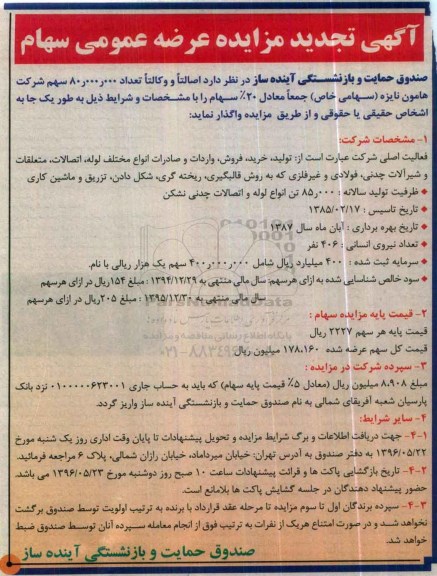 آگهی تجدید مزایده عرضه عمومی سهام
صندوق حمایت و بازنشستگی آینده ساز در نظر دارد اصالتاً و وکالتاً تعداد ۸۰٫۰۰۰٫۰۰۰ سهم شرکت
هامون نایزه (سهامی خاص) جمعاً معادل ۲۰٪ سهام را با مشخصات و شرایط ذیل به طور یک جا به
اشخاص حقیقی یا حقوقی و از طریق مزایده واگذار نماید:
۱- مشخصات شرکت:
فعالیت اصلی شرکت عبارت است از: تولید، خرید، فروش، واردات و صادرات انواع مختلف لوله، اتصالات، متعلقات
و شیرآلات چدنی، فولادی و غیرفلزی که به روش قالبگیری، ریخته گری، شکل دادن، تزریق و ماشین کاری
ظرفیت تولید سالانه : ۸۵٫۰۰۰ تن انواع لوله و اتصالات چدنی نشکن
تاریخ تاسیس : ۱۳۸۵/۰۲/۱۷
تاریخ بهره برداری : آبان ماه سال ۱۳۸۷
تعداد نیروی انسانی : ۴۰۶ نفر
سرمایه ثبت شده : ۴۰۰ میلیارد ریال شامل ۴۰۰٫۰۰۰٫۰۰۰ سهم یک هزار ریالی با نام.
سود خالص شناسایی شده به ازای هرسهم: سال مالی منتهی به ۱۳۹۴/۱۲/۲۹ : مبلغ ۱۵۴ ریال در ازای هرسهم
سال مالی منتهی به ۱۳۹۵/۱۲/۳۰ : مبلغ ۲۰۵ ریال در ازای هرسهم
۲- قیمت پایه مزایده سهام :
قیمت پایه هر سهم ۲۲۲۷ ریال
قیمت کل سهم عرضه شده ۱۷۸،۱۶۰ میلیون ریال
۳- سپرده شرکت در مزایده :
مبلغ ۸،۹۰۸ میلیون ریال (معادل ۵٪ قیمت پایه سهام) که باید به حساب جاری ۰۱۰۰۰۰۰۶۲۳۰۰۱ نزد بانک
پارسیان شعبه آفریقای شمالی به نام صندوق حمایت و بازنشستگی آینده ساز واریز گردد.
۴- سایر شرایط:
۴-۱- جهت دریافت اطلاعات و برگ شرایط مزایده و تحویل پیشنهادات تا پایان وقت اداری روز یک شنبه مورخ
۱۳۹۶/۰۵/۲۲ به دفتر صندوق به آدرس تهران: خیابان میرداماد، خیابان رازان شمالی، پلاک ۶ مراجعه فرمائید.
۴-۲- تاریخ بازگشایی پاکت ها و قرائت پیشنهادات ساعت ۱۰ صبح روز دوشنبه مورخ ۱۳۹۶/۰۵/۲۳ می باشد.
حضور پیشنهاد دهندگان در جلسه گشایش پاکت ها بلامانع است.
۴-۳- سپرده برندگان اول تا سوم مزایده تا مرحله عقد قرارداد با برنده به ترتیب اولویت توسط صندوق برگشت
نخواهد شد و در صورت امتناع هریک از نفرات به ترتیب فوق از انجام معامله سپرده آنان توسط صندوق ضبط
خواهد شد.
صندوق حمایت و بازنشستگی آینده ساز